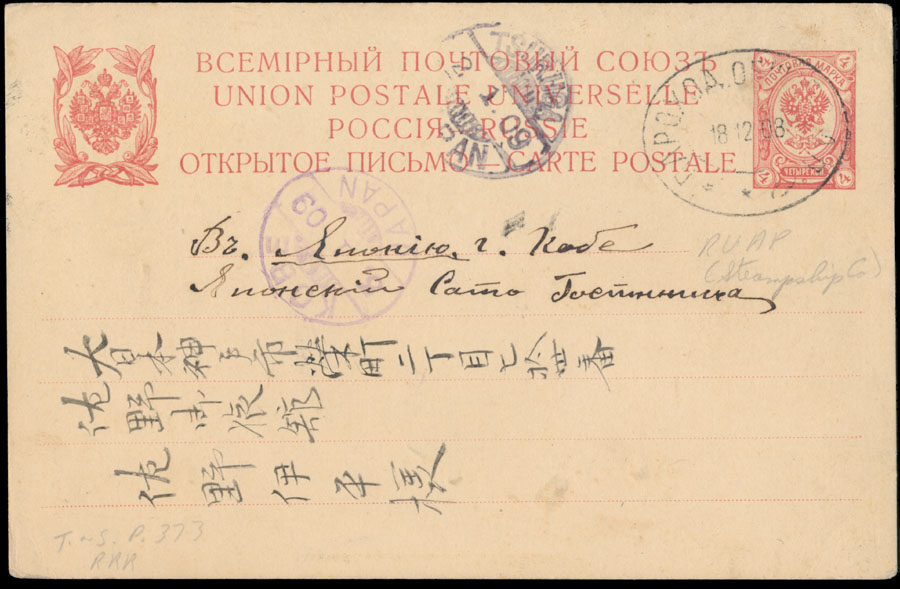 ВСЕМІРНЫЙ ПОЧТОВЫЙ СОЮЗЪ
UNION POSTALE UNIVERSELLE
РОССІЯ RUSSIE
ОТКРЫТОЕ ПИСЬМО—CARTE POSTALE
ПОЧТОВАЯ МАРКА
4 4
ЧЕТЫРЕ КОП
4 4
TSURUGA
JAPAN
1 09
ПАРОХОД. О
18 12 08
KOBE
JAPAN
09
Въ Японію. г. Кобе
Японскій Сато Гостинница
RUAP
(Steamship Co)
大日本神戸市 町二丁目七拾番
佐野 旅館
佐野伊平様
T. & S. P. 373
RRR